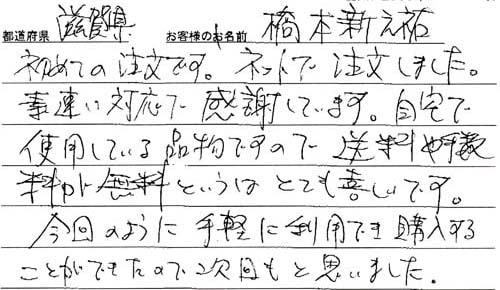 都道府県 滋賀県 お客様のお名前 橋本新之祐
初めての注文です。ネットで注文しました。
素速い対応で感謝しています。自宅で
使用している品物ですので送料や手数
料が無料というはとても喜しいです。
今回のように手軽に利用でき購入する
ことができたので次回もと思いました。